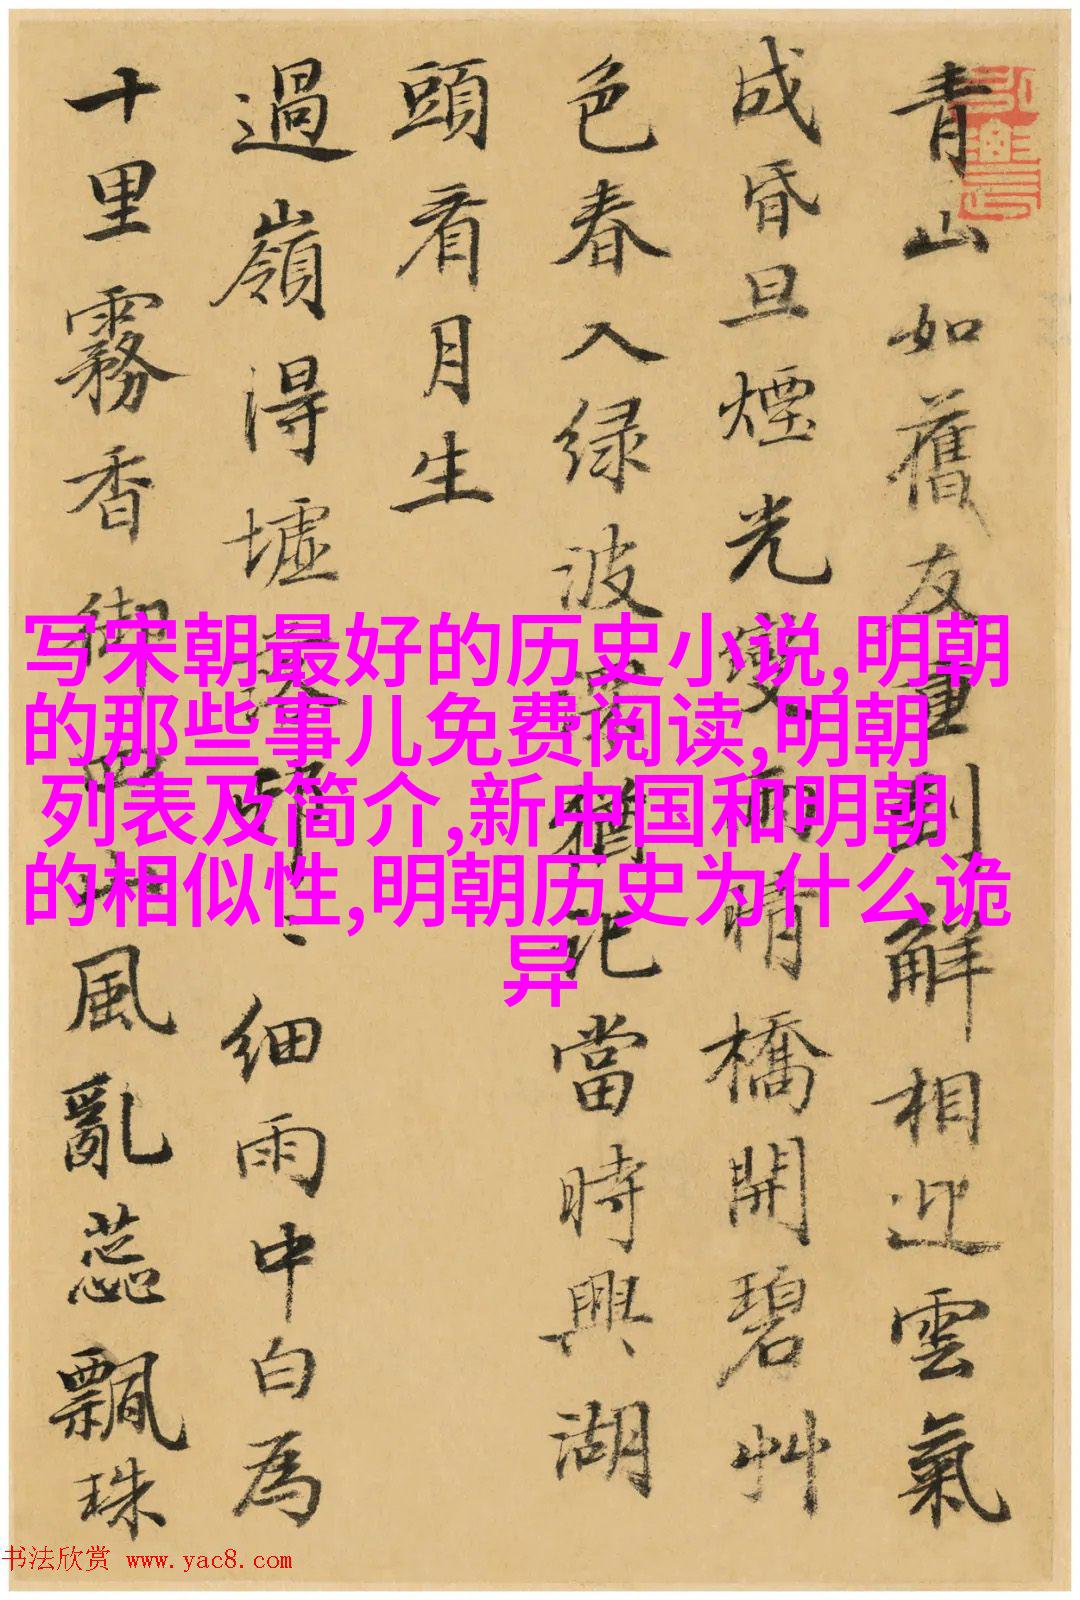 青山如舊友重別解相迎雲氣
成昏旦煙光變雨晴橋開碧艸
色春入绿波猶記當時興湖
頭看月生
過嶺得墟細雨中白為
十里霧香御風亂蕊飄珠
写宋朝最好的历史小说,明朝
的那些事儿免费阅读,明朝
列表及简介,新中国和明朝
的相似性,明朝历史为什么诡
异
书法欣赏 www.yac8.com